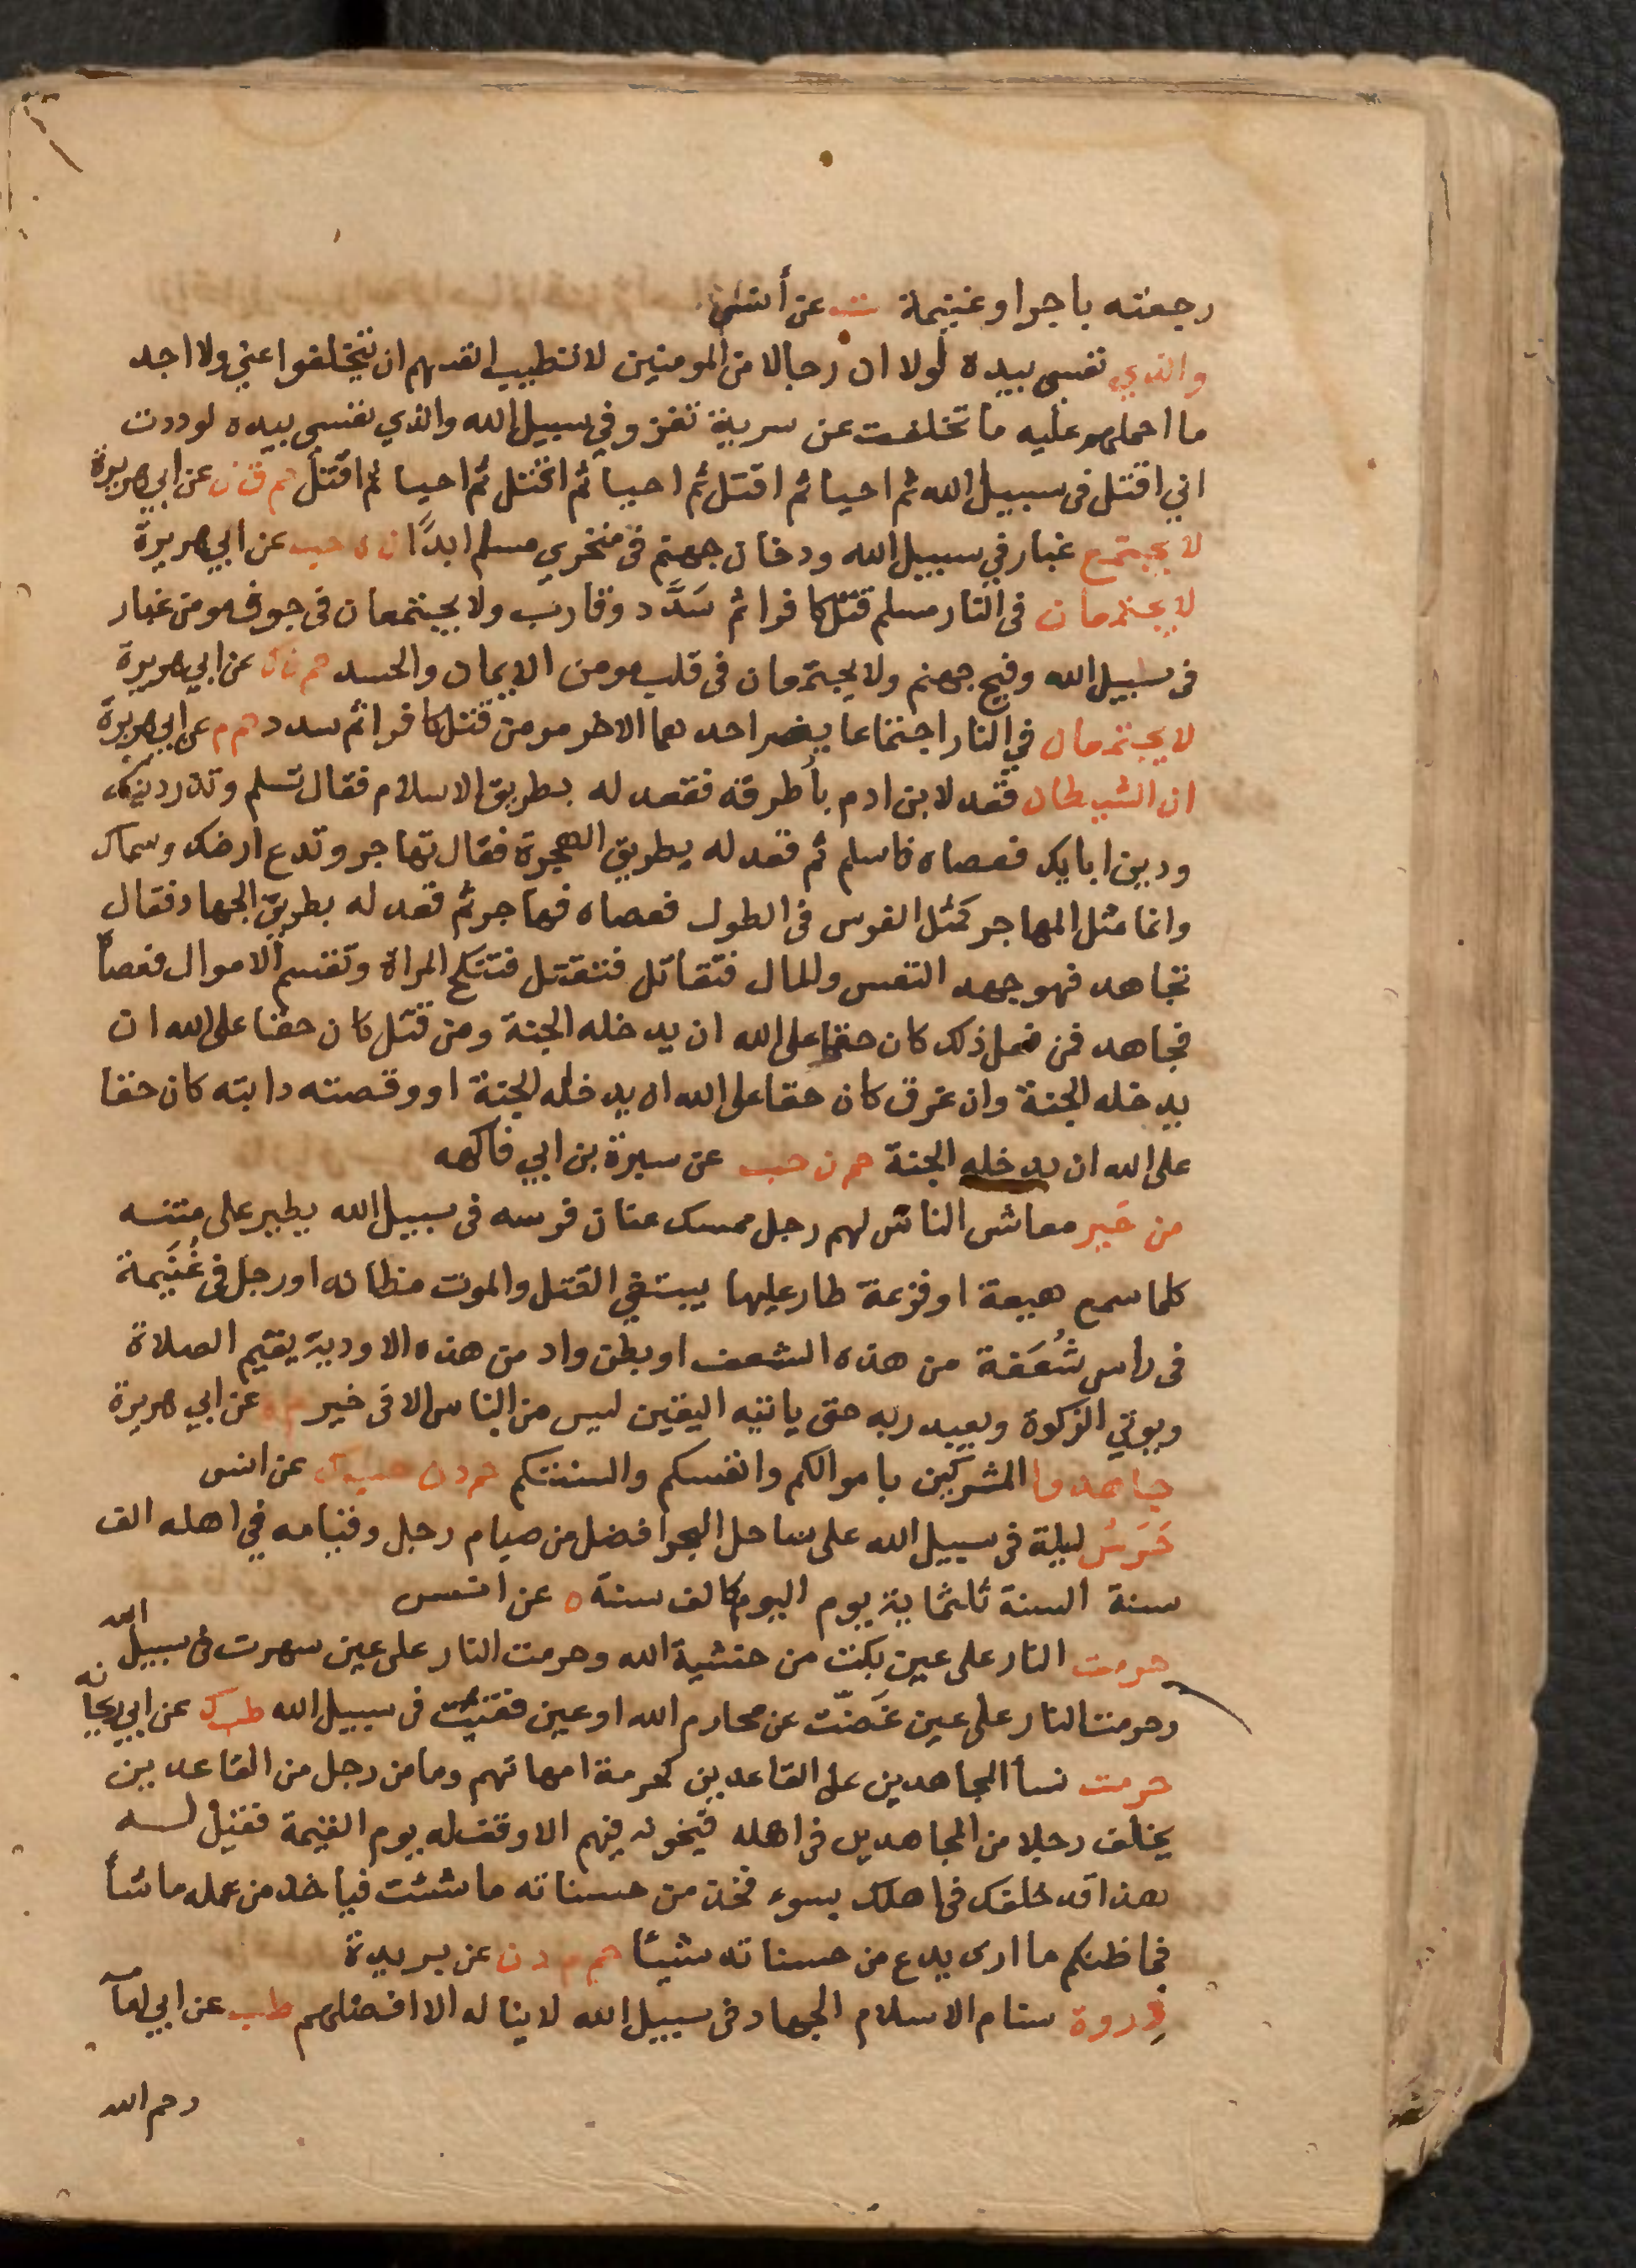 رجعته باجر او غنيمة ت عن أنس
والذي نفسي بيده لولا ان رجالا من المومنين لا تطيب انفسهم ان يتخلفوا عني ولا اجد
ما احملهم عليه ما تخلفت عن سرية تغزو في سبيل الله والذي نفسي بيده لوددت
اني اقتل في سبيل الله ثم احيا ثم اقتل ثم احيا ثم اقتل ثم احيا ثم اقتل حم ق ن عن ابي هريرة
لا يجتمع غبار في سبيل الله ودخان جهنم في منخري مسلم ابدًا ن ه حب عن ابي هريرة
لا يجتمعان في النار مسلم قتل كافرا ثم سَدَّد وقارب ولا يجتمعان في جوف مومن غبار
في سبيل الله وفيح جهنم ولا يجتمعان في قلب مومن الايمان والحسد حم ن ك عن ابي هريرة
لا يجتمعان في النار اجتماعا يضر احدهما الاخر مومن قتل كافرا ثم سدد حم م عن ابي هريرة
ان الشيطان قعد لابن ادم بأطرقه فقعد له بطريق الاسلام فقال تسلم وتذر دينك
ودين ابايك فعصاه فاسلم ثم قعد له بطريق الهجرة فقال تهاجر وتدع ارضك وسماك
وانما مثل المهاجر كمثل الفرس في الطول فعصاه فهاجر ثم قعد له بطريق الجهاد فقال
تجاهد فهو جهد النفس والمال فتقاتل فتقتل فتنكح المراة وتقسم الاموال فعصاه
فجاهد فمن فعل ذلك كان حقا على الله ان يدخله الجنة ومن قتل كان حقا على الله ان
يدخله الجنة وان غرق كان حقا على الله ان يدخله الجنة او وقصته دابته كان حقا
على الله ان يدخله الجنة حم ن حب عن سبرة بن ابي فاكهه
من خَير معاش الناس لهم رجل ممسك عنان فرسه في سبيل الله يطير على متنه
كلما سمع هيعة او فزعة طار عليها يبتغي القتل والموت مظانه او رجل في غُنَيمة
في راس شُعَفة من هذه الشعف او بطن واد من هذه الاودية يقيم الصلاة
ويوتي الزكوة ويعبد ربه حتى ياتيه اليقين ليس من الناس الا في خير م ه عن ابي هريرة
جاهدوا المشركين باموالكم وانفسكم والسنتكم حم د ن حب ك عن انس
حَرَسُ ليلة في سبيل الله على ساحل البحر افضل من صيام رجل وقيامه في اهله الف
سنة السنة ثلثماية يوم اليوم كالف سنة ه عن انس
حرمت النار على عين بكت من خشية الله وحرمت النار على عين سهرت في سبيل الله
وحرمت النار على عين غَضّت عن محارم الله او عين فقئت في سبيل الله طب ك عن ابي ريحانه
حرمت نسأ المجاهدين على القاعدين كحرمة امهاتهم وما من رجل من القاعدين
يخلف رجلا من المجاهدين في اهله فيخونه فيهم الا وقف له يوم القيمة فقيل له
هذا قد خلفك في اهلك بسوء فخذ من حسناته ما شئت فيأخذ من عمله ما شأ
فما ظنكم ما ارى يدع من حسناته شيئا حم م د ن عن بريدة
ذِروة سنام الاسلام الجهاد في سبيل الله لا يناله الا افضلهم طب عن ابي امامة
رحم الله